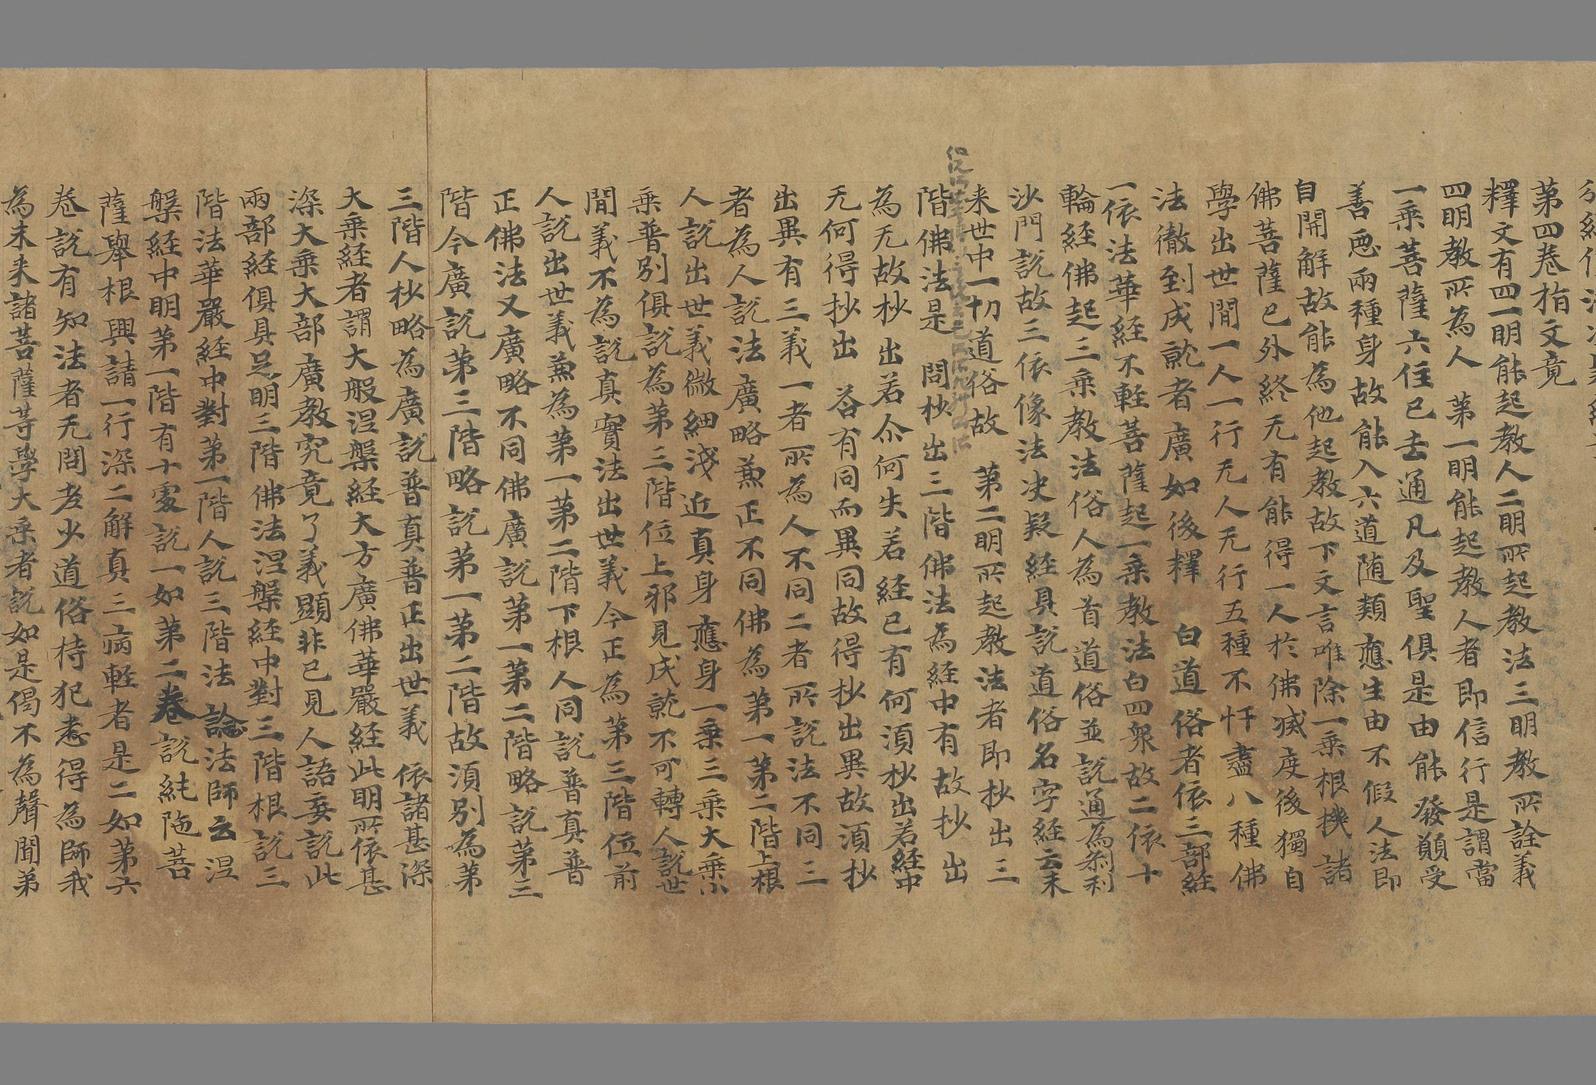 第四卷指文竟
釋文有四一明能起教人二明所起教法三明教所詮義
四明教所為人 第一明能起教人者即信行是謂當
一乘菩薩六住已去通凡及聖俱是由能發願受
善惡兩種身故能入六道随類應生由不假人法即
自開解故能為他起教故下文言唯除一乘根機諸
佛菩薩已外終无有能得一人於佛滅度後獨自
學出世間一人一行无人无行五種不忏盡八種佛
法徹到成就者廣如後釋 白道俗者依三部経
一依法華経不輕菩薩起一乘教法白四衆故二依十
輪経佛起三乘教法俗人為首道俗並說通為刹利
沙門說故三依像法决疑経具說道俗名字経云未
来世中一切道俗故 第二明所起教法者即抄出三
階佛法是 問抄出三階佛法為経中有故抄出
為无故抄出若尒何失若経已有何湏抄出若経中
无何得抄出 荅有同而異同故得抄出異故湏抄
出異有三義一者所為人不同二者所說法不同三
者為人說法廣略兼正不同佛為第一第二階上根
人說出世義微細淺近真身應身一乘三乘大乘小
乘普別俱說為第三階位上邪見成就不可轉人說世
間義不為說真實法出世義今正為第三階位前
人說出世義兼為第一第二階下根人同說普真普
正佛法又廣略不同佛廣說第一第二階略說第三
階今廣說第三階略說第一第二階故湏別為第
三階人抄略為廣說普真普正出世義 依諸甚深
大乘経者謂大般涅槃経大方廣佛華嚴経此明所依甚
深大乘大部廣教究竟了義顯非已見人語妄說此
兩部経俱具足明三階佛法涅槃経中對三階根說三
階法華嚴経中對第一階人說三階法論法師云涅
槃経中明第一階有十處說一如第二卷說純陁菩
薩舉根興請一行深二解真三病輕者是二如第六
卷說有知法者无問老少道俗持犯悉得為師我
為未来諸菩薩等學大乘者說如是偈不為聲聞弟